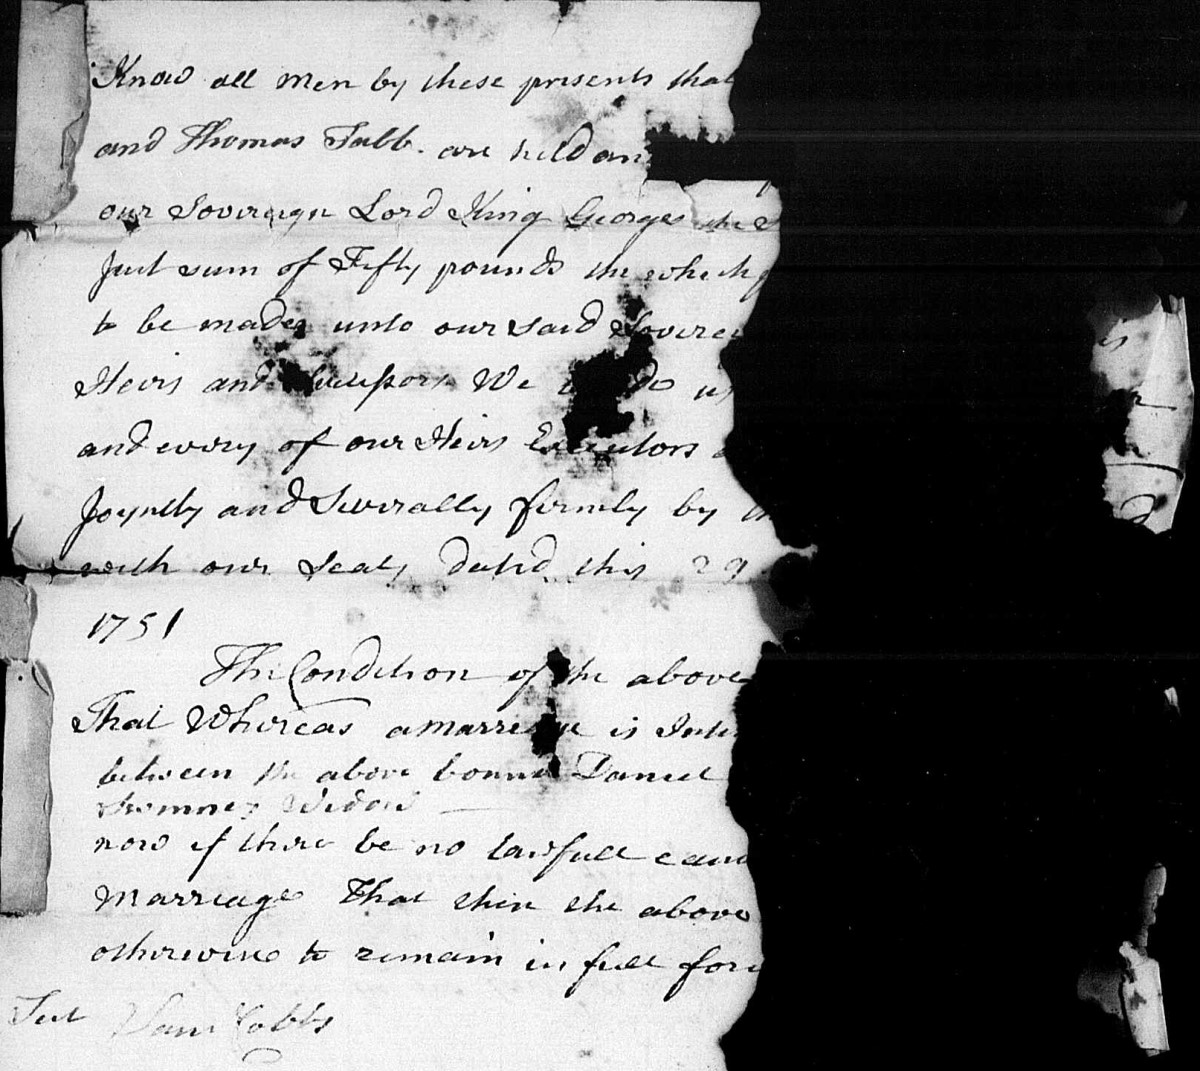 Know all Men by these presents that
and Thomas Tabb. are held an
our Sovereign Lord King George the S
Just sum of Fifty pounds the which p
to be made unto our said Soverei
Heirs and Successors We do us
and every of our Heirs Executors a
Joyntly and Severally firmly by th
with our Seals dated this 29
1751
The Condition of the above
That Whereas a Marriage is Inte
between the above bound Daniel
Widow
now if there be no lawfull caus
Marriage That then the above
otherwise to remain in full forc
Test Sam Cobbs